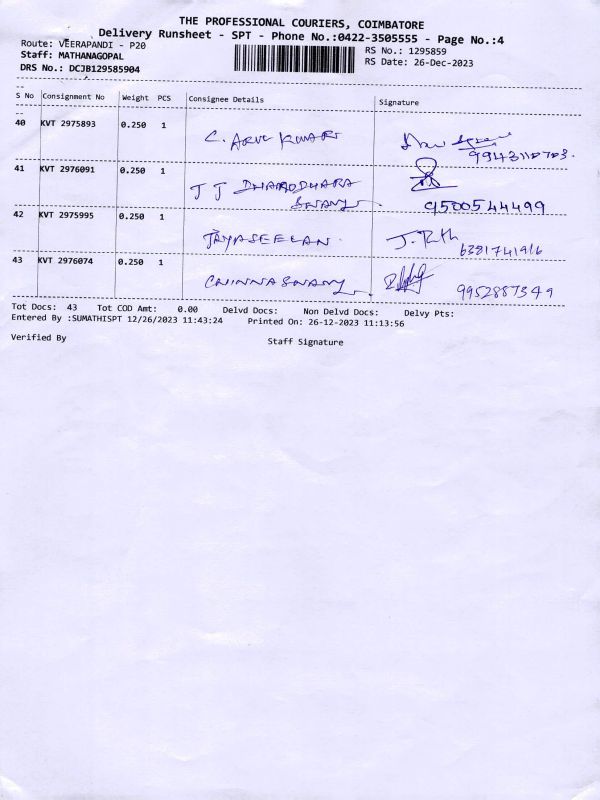 THE PROFESSIONAL COURIERS, COIMBATORE
Delivery Runsheet - SPT - Phone No.:0422-3505555 - Page No.:4
Route: VEERAPANDI - P20
RS No.: 1295859
Staff: MATHANAGOPAL
RS Date: 26-Dec-2023
DRS No.: DCJB129585904
S No Consignment No Weight PCS Consignee Details Signature
40 KVT 2975893 0.250 1 C. ARUL KUMAR
41 KVT 2976091 0.250 1 JJ DHAMODHARA
SWAMY 9500544499
42 KVT 2975995 0.250 1 JAYASEELAN. J.
43 KVT 2976074 0.250 1 CHINNASWAMY 9952887349
Tot Docs: 43 Tot COD Amt: 0.00 Delvd Docs: Non Delvd Docs: Delvy Pts:
Entered By :SUMATHISPT 12/26/2023 11:43:24 Printed On: 26-12-2023 11:13:56
Verified By Staff Signature